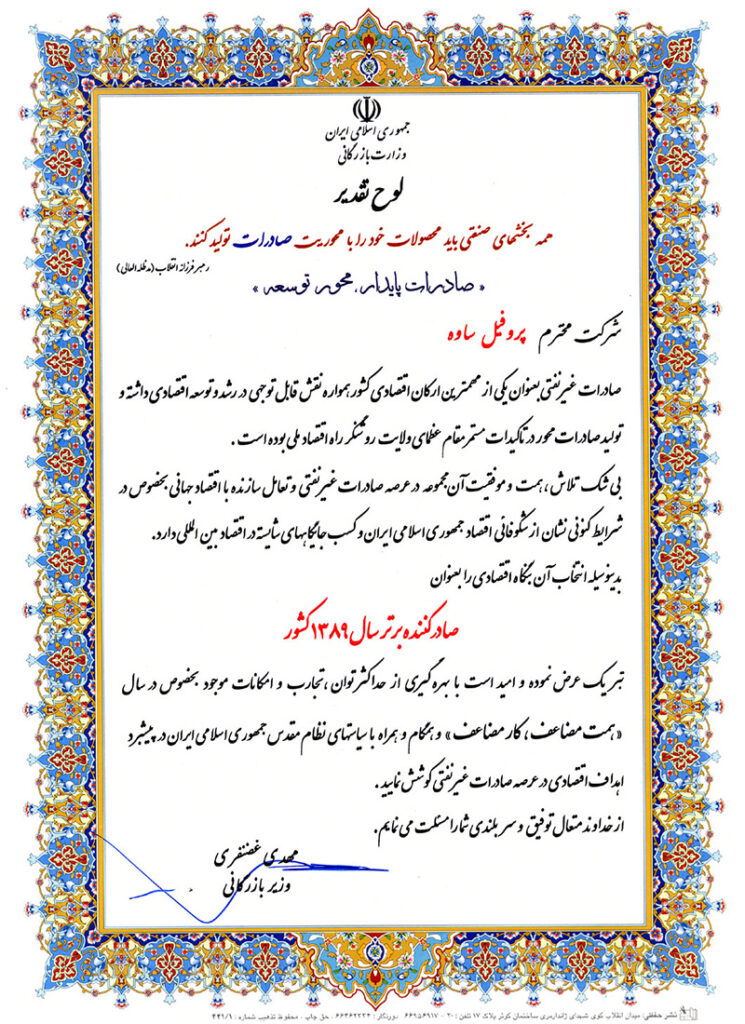 جمهوری اسلامی ایران
وزارت بازرگانی
لوح تقدیر
همه بخشهای صنعتی باید محصولات خود را با محوریت صادرات تولید کنند.
رهبر فرزانه انقلاب (مدظله العالی)
« صادرات پایدار، محور توسعه »
شرکت محترم پروفیل ساوه
صادرات غیرنفتی بعنوان یکی از مهمترین ارکان اقتصادی کشور همواره نقش قابل توجهی در رشد و توسعه اقتصادی داشته و
تولید صادرات محور در تاکیدات مستمر مقام عظمای ولایت روشنگر راه اقتصاد ملی بوده است .
بی شک تلاش ، همت و موفقیت آن مجموعه در عرصه صادرات غیرنفتی و تعامل سازنده با اقتصاد جهانی بخصوص در
شرایط کنونی نشان از شکوفائی اقتصاد جمهوری اسلامی ایران و کسب جایگاههای شایسته در اقتصاد بین المللی دارد.
بدینوسیله انتخاب آن بنگاه اقتصادی را بعنوان
صادرکننده برتر سال ۱۳۸۹ کشور
تبریک عرض نموده و امید است با بهره گیری از حداکثر توان ، تجارب و امکانات موجود بخصوص در سال
«همت مضاعف ، کار مضاعف» و همگام و همراه با سیاستهای نظام مقدس جمهوری اسلامی ایران در پیشبرد
اهداف اقتصادی در عرصه صادرات غیرنفتی کوشش نمایید .
از خداوند متعال توفیق و سربلندی شما را مسئلت می نمایم .
مهدی غضنفری
وزیر بازرگانی
نشر حفظی: میدان انقلاب کوی شهدای ژاندارمری ساختمان کوثر پلاک ۱۷ تلفن : ۲۰ - ۶۶۹۵۶۹۱۷ دورنگار : ۶۶۳۶۲۲۳۴ . حق چاپ - محفوظ تذهیب شماره : ۴۴۱/۱